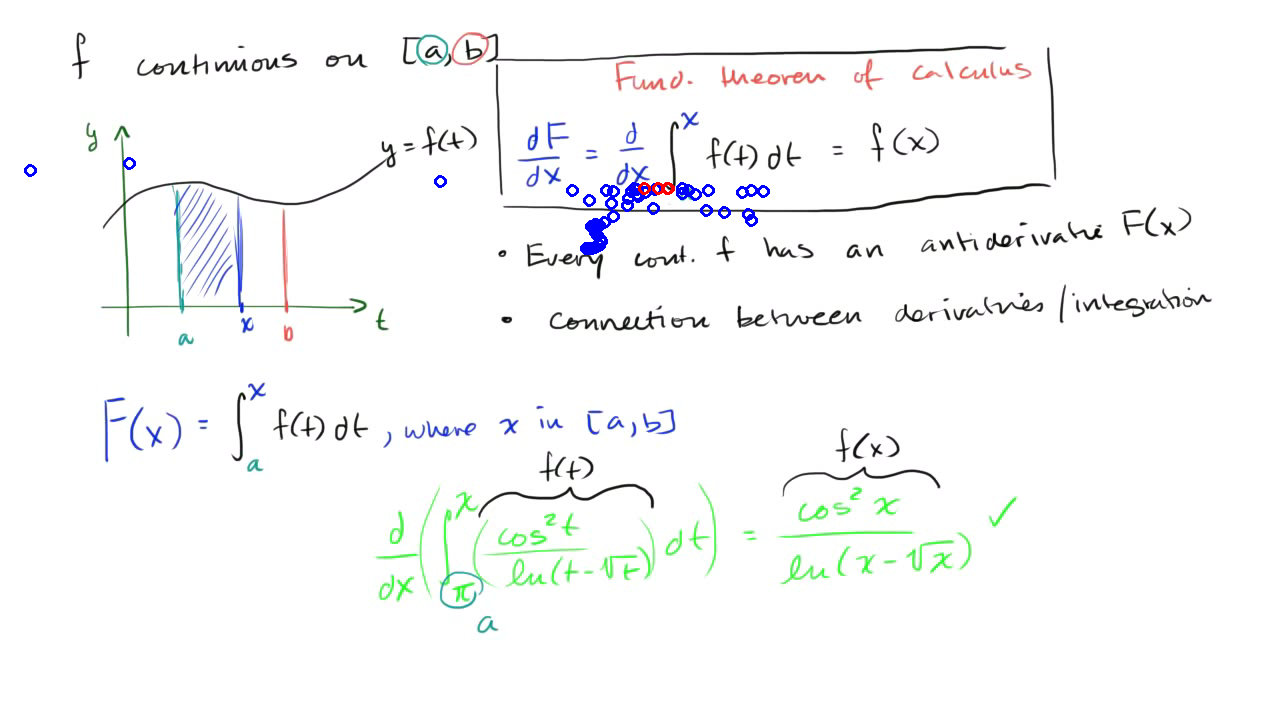 f continious on [a, b]
Fund. theorem of calculus
dF/dx = d/dx ∫^x f(t) dt = f(x)
y
y = f(t)
a x b t
• Every cont. f has an antiderivative F(x)
• connection between derivatives / integration
F(x) = ∫_a^x f(t) dt , where x in [a, b]
f(t) f(x)
d/dx ( ∫_π^x ( cos² t / ln(t - √t) ) dt ) = cos² x / ln(x - √x) ✓
a